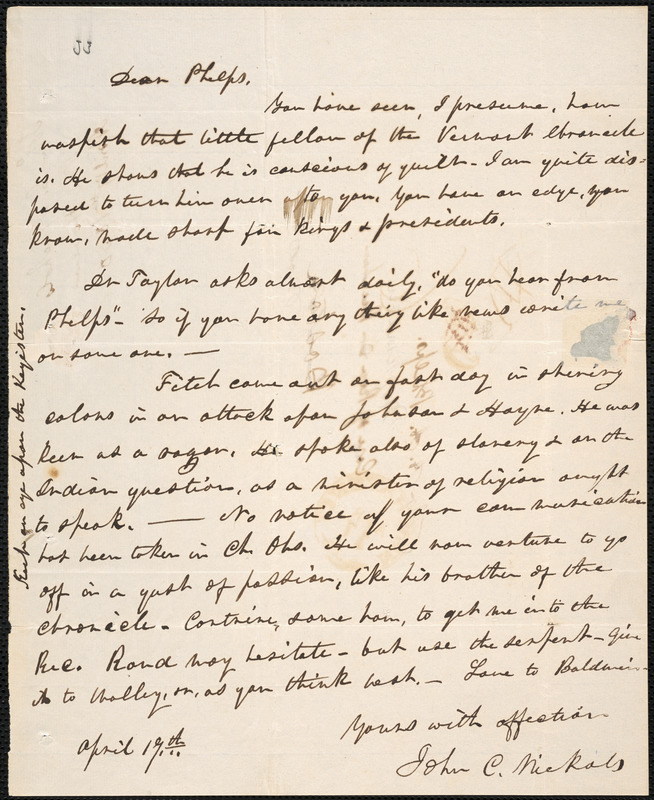 33
Dear Phelps.
You have seen, I presume, how
waspish that little fellow of the Vermont Chronicle
is. He shows that he is conscious of guilt - I am quite dis=
posed to turn him over to you. You have an edge, you
know, made sharp for kings & presidents.
Dr Taylor asks almost daily, "do you hear from
Phelps"- So if you have any thing like news write me,
or some one. —
Fitch came out on fast day in shining
colors in an attack upon Johnson & Hayne. He was
keen as a razor. He spoke also of slavery & on the
Indian question, as a minister of religion ought
to speak. —— No notice of your communication
has been taken in Ch. Obs. He will now venture to go
off in a gush of passion, like his brother of the
Chronicle - Contrive, some how, to get me into the
Rec. Rand may hesitate - but use the serpent - Give
it to Walley, or, as you think best. - Love to Baldwin -
Yours with affection
April 19th
John C. Nickols
Keep an eye upon the Register.